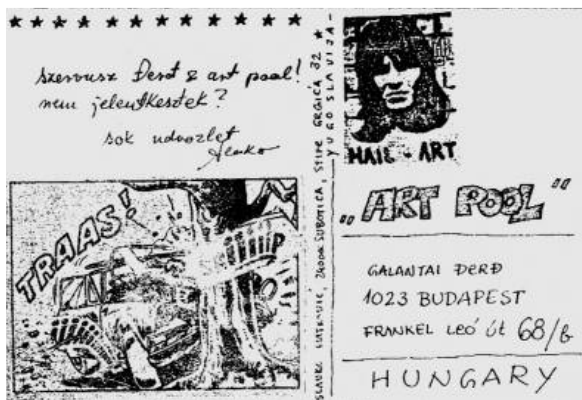 szervusz Đerđ & art pool!
nem jelentkeztek?
sok udvozlet
Slavko
TRAAS!
SUBOTICA, STIPE GRGICA 32 ★
YUGOSLAVIJA
MAIL - ART
„ART POOL"
GALANTAI ĐERĐ
1023 BUDAPEST
FRANKEL LEÓ ÚT 68/b
HUNGARY